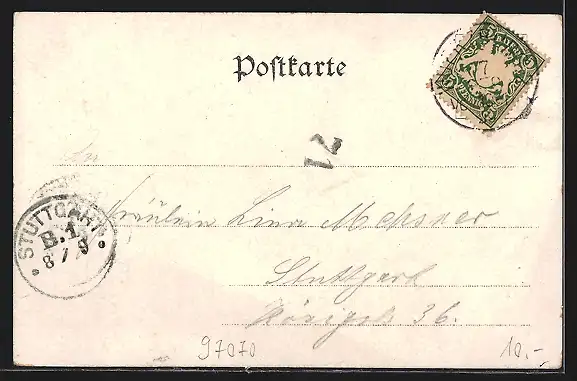 Postkarte
12
An
Fräulein Lina Messner
STUTTGART
B.1.
8 7 9
Stuttgart
Königstr. 36.
97070
10.-